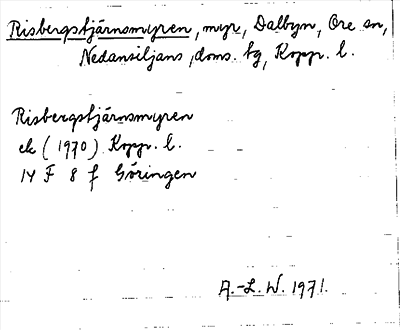 Risbergstjärnsmyren, myr, Dalbyn, Ore sn,
Nedansiljans, doms. tg, Kopp. l.
Risbergstjärnsmyren
ek (1970) Kopp. l.
14 F 8 f Göringen
A.-L. W. 1971.